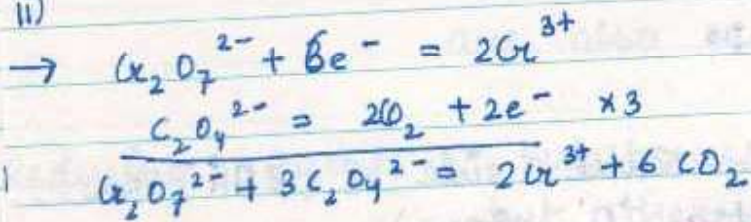 11)
→ Cr₂O₇²⁻ + 6e⁻ = 2Cr³⁺
C₂O₄²⁻ = 2CO₂ + 2e⁻ ×3
Cr₂O₇²⁻ + 3C₂O₄²⁻ = 2Cr³⁺ + 6CO₂